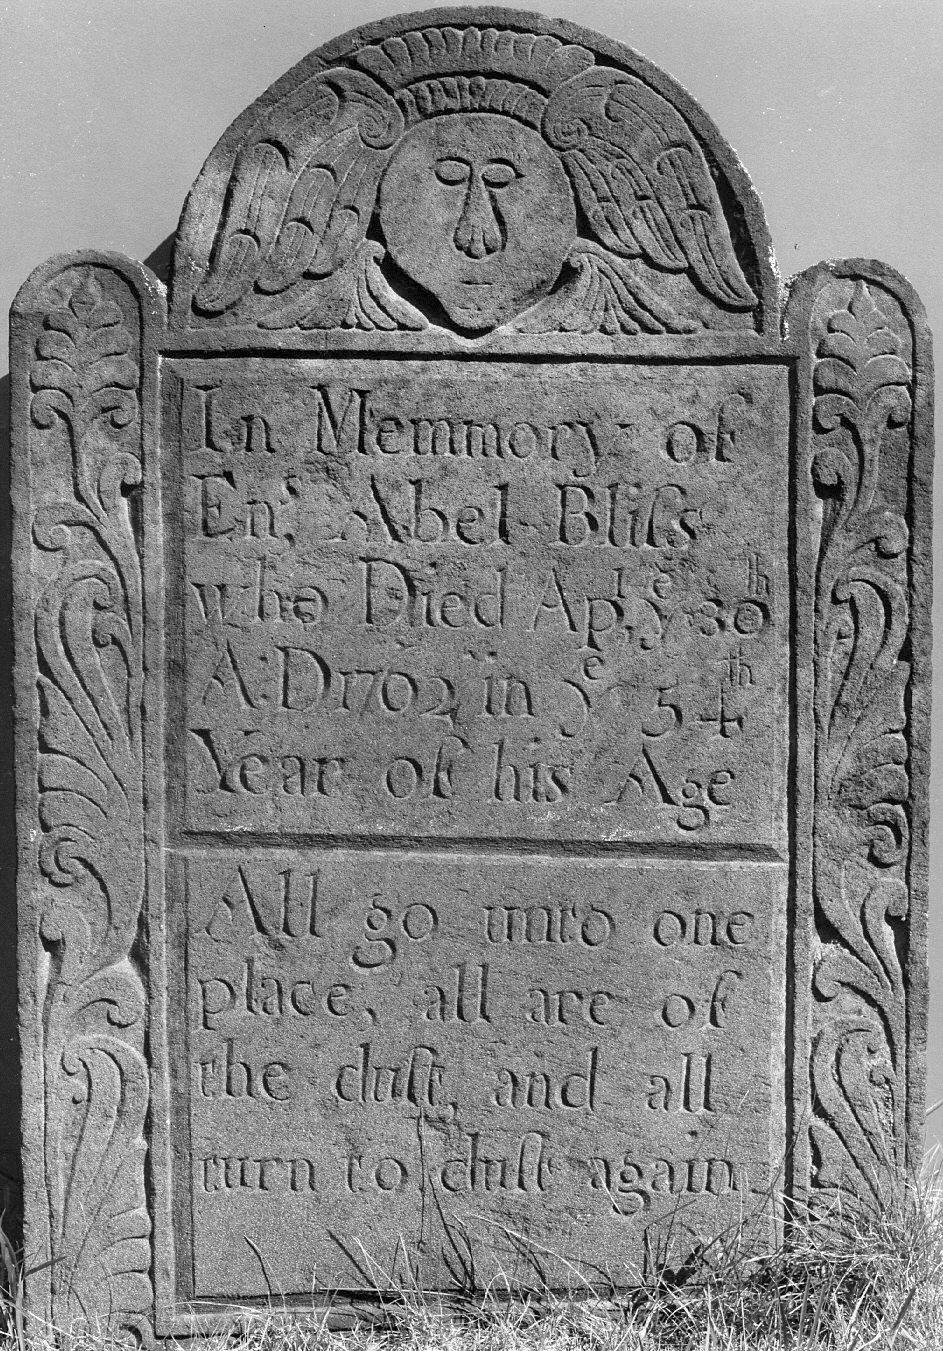 In Memmory of
Enˢ. Abel Bliſs
who Died Apˡ. yᵉ 30ᵗʰ
A:D1702 in yᵉ 54ᵗʰ
Year of his Age
All go unto one
place, all are of
the duſt, and all
turn to duſt again